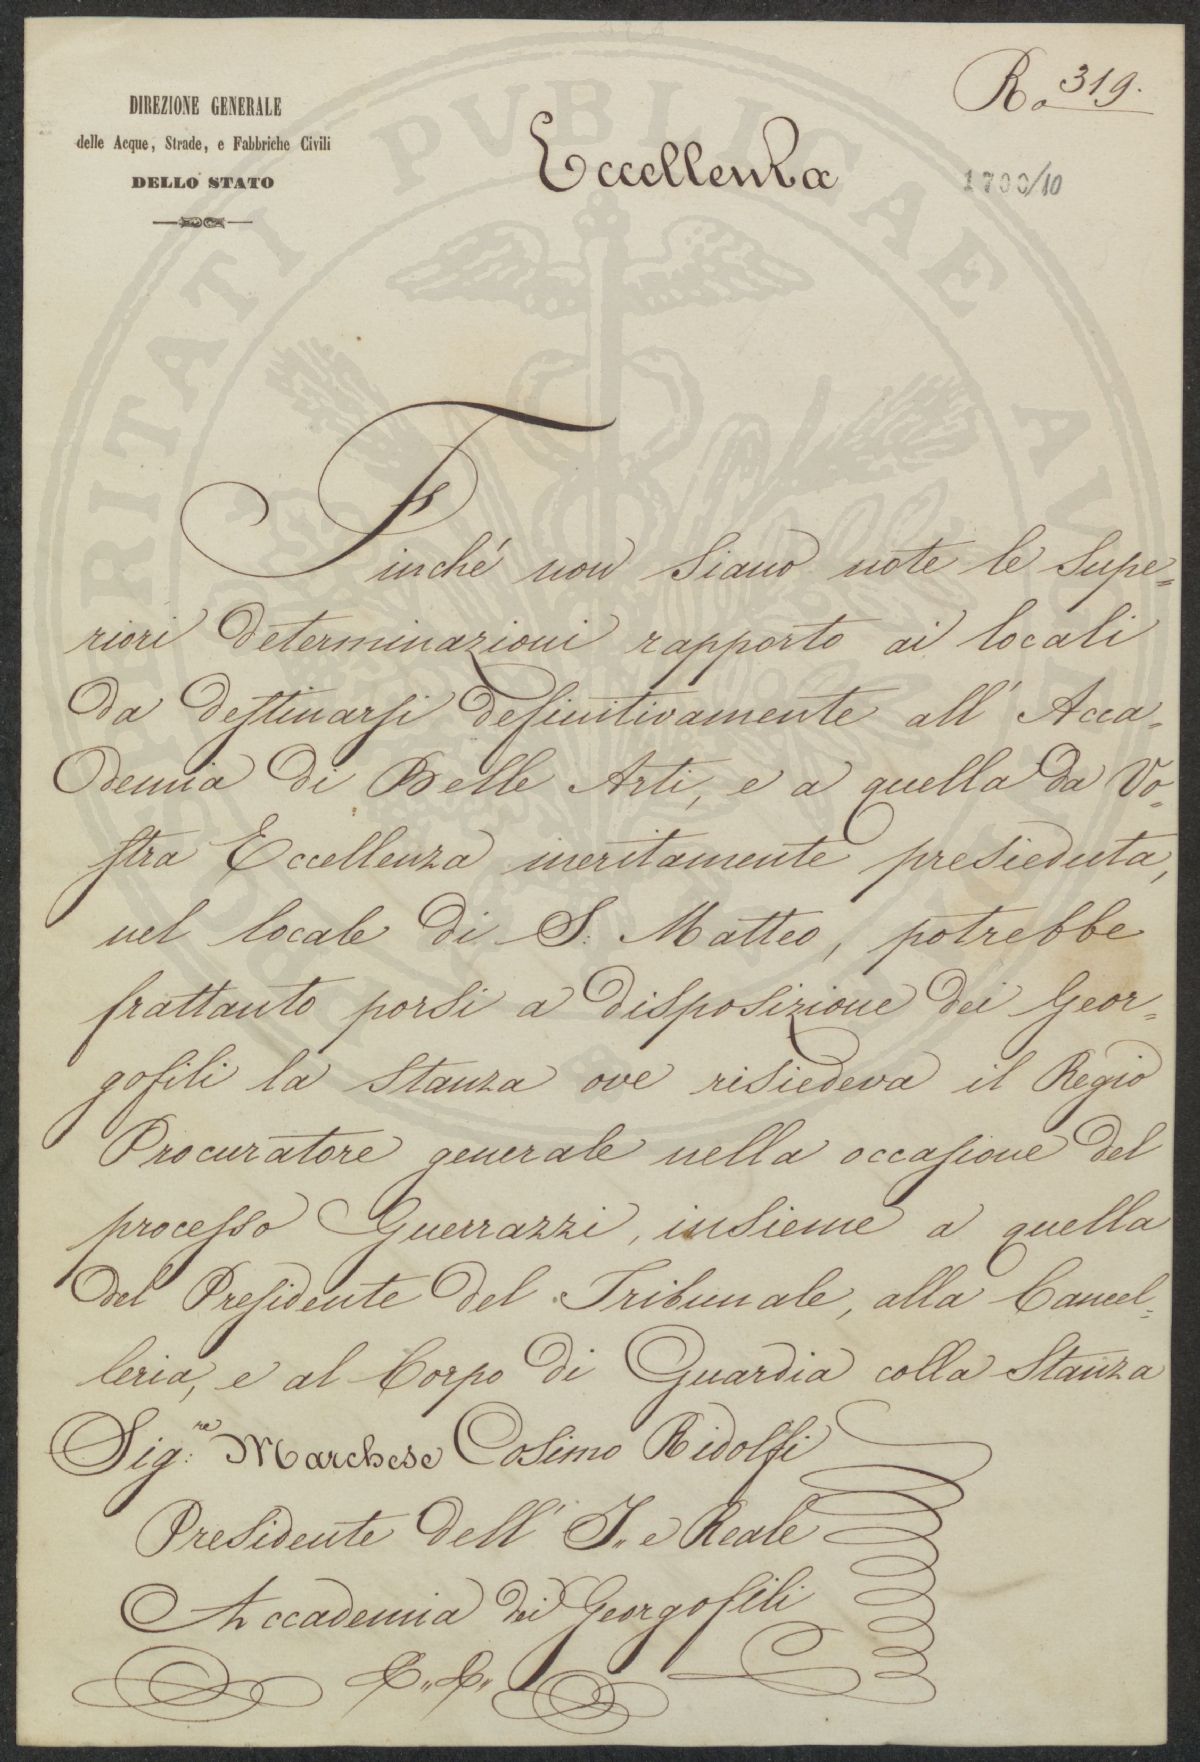 DIREZIONE GENERALE
delle Acque, Strade, e Fabbriche Civili
DELLO STATO
Ro 319.
Eccellenza
1700/10
Finché non siano note le supe=
riori determinazioni rapporto ai locali
da destinarsi definitivamente all' Acca=
demia di Belle Arti, e a quella da Vo=
stra Eccellenza meritamente presieduta,
nel locale di S. Matteo, potrebbe
frattanto porsi a disposizione dei Geor=
gofili la stanza ove risiedeva il Regio
Procuratore generale nella occasione del
processo Guerrazzi, insieme a quella
del Presidente del Tribunale, alla Cancel=
leria, e al Corpo di Guardia colla Stanza
Sig:re Marchese Cosimo Ridolfi
Presidente dell' I. e Reale
Accademia dei Georgofili